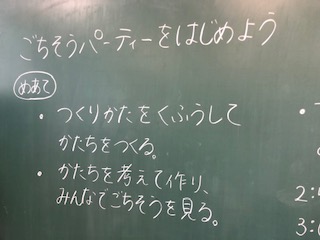 ごちそうパーティーをはじめよう
めあて
・つくりかたをくふうして
かたちをつくる。
・かたちを考えて作り、
みんなでごちそうを見る。